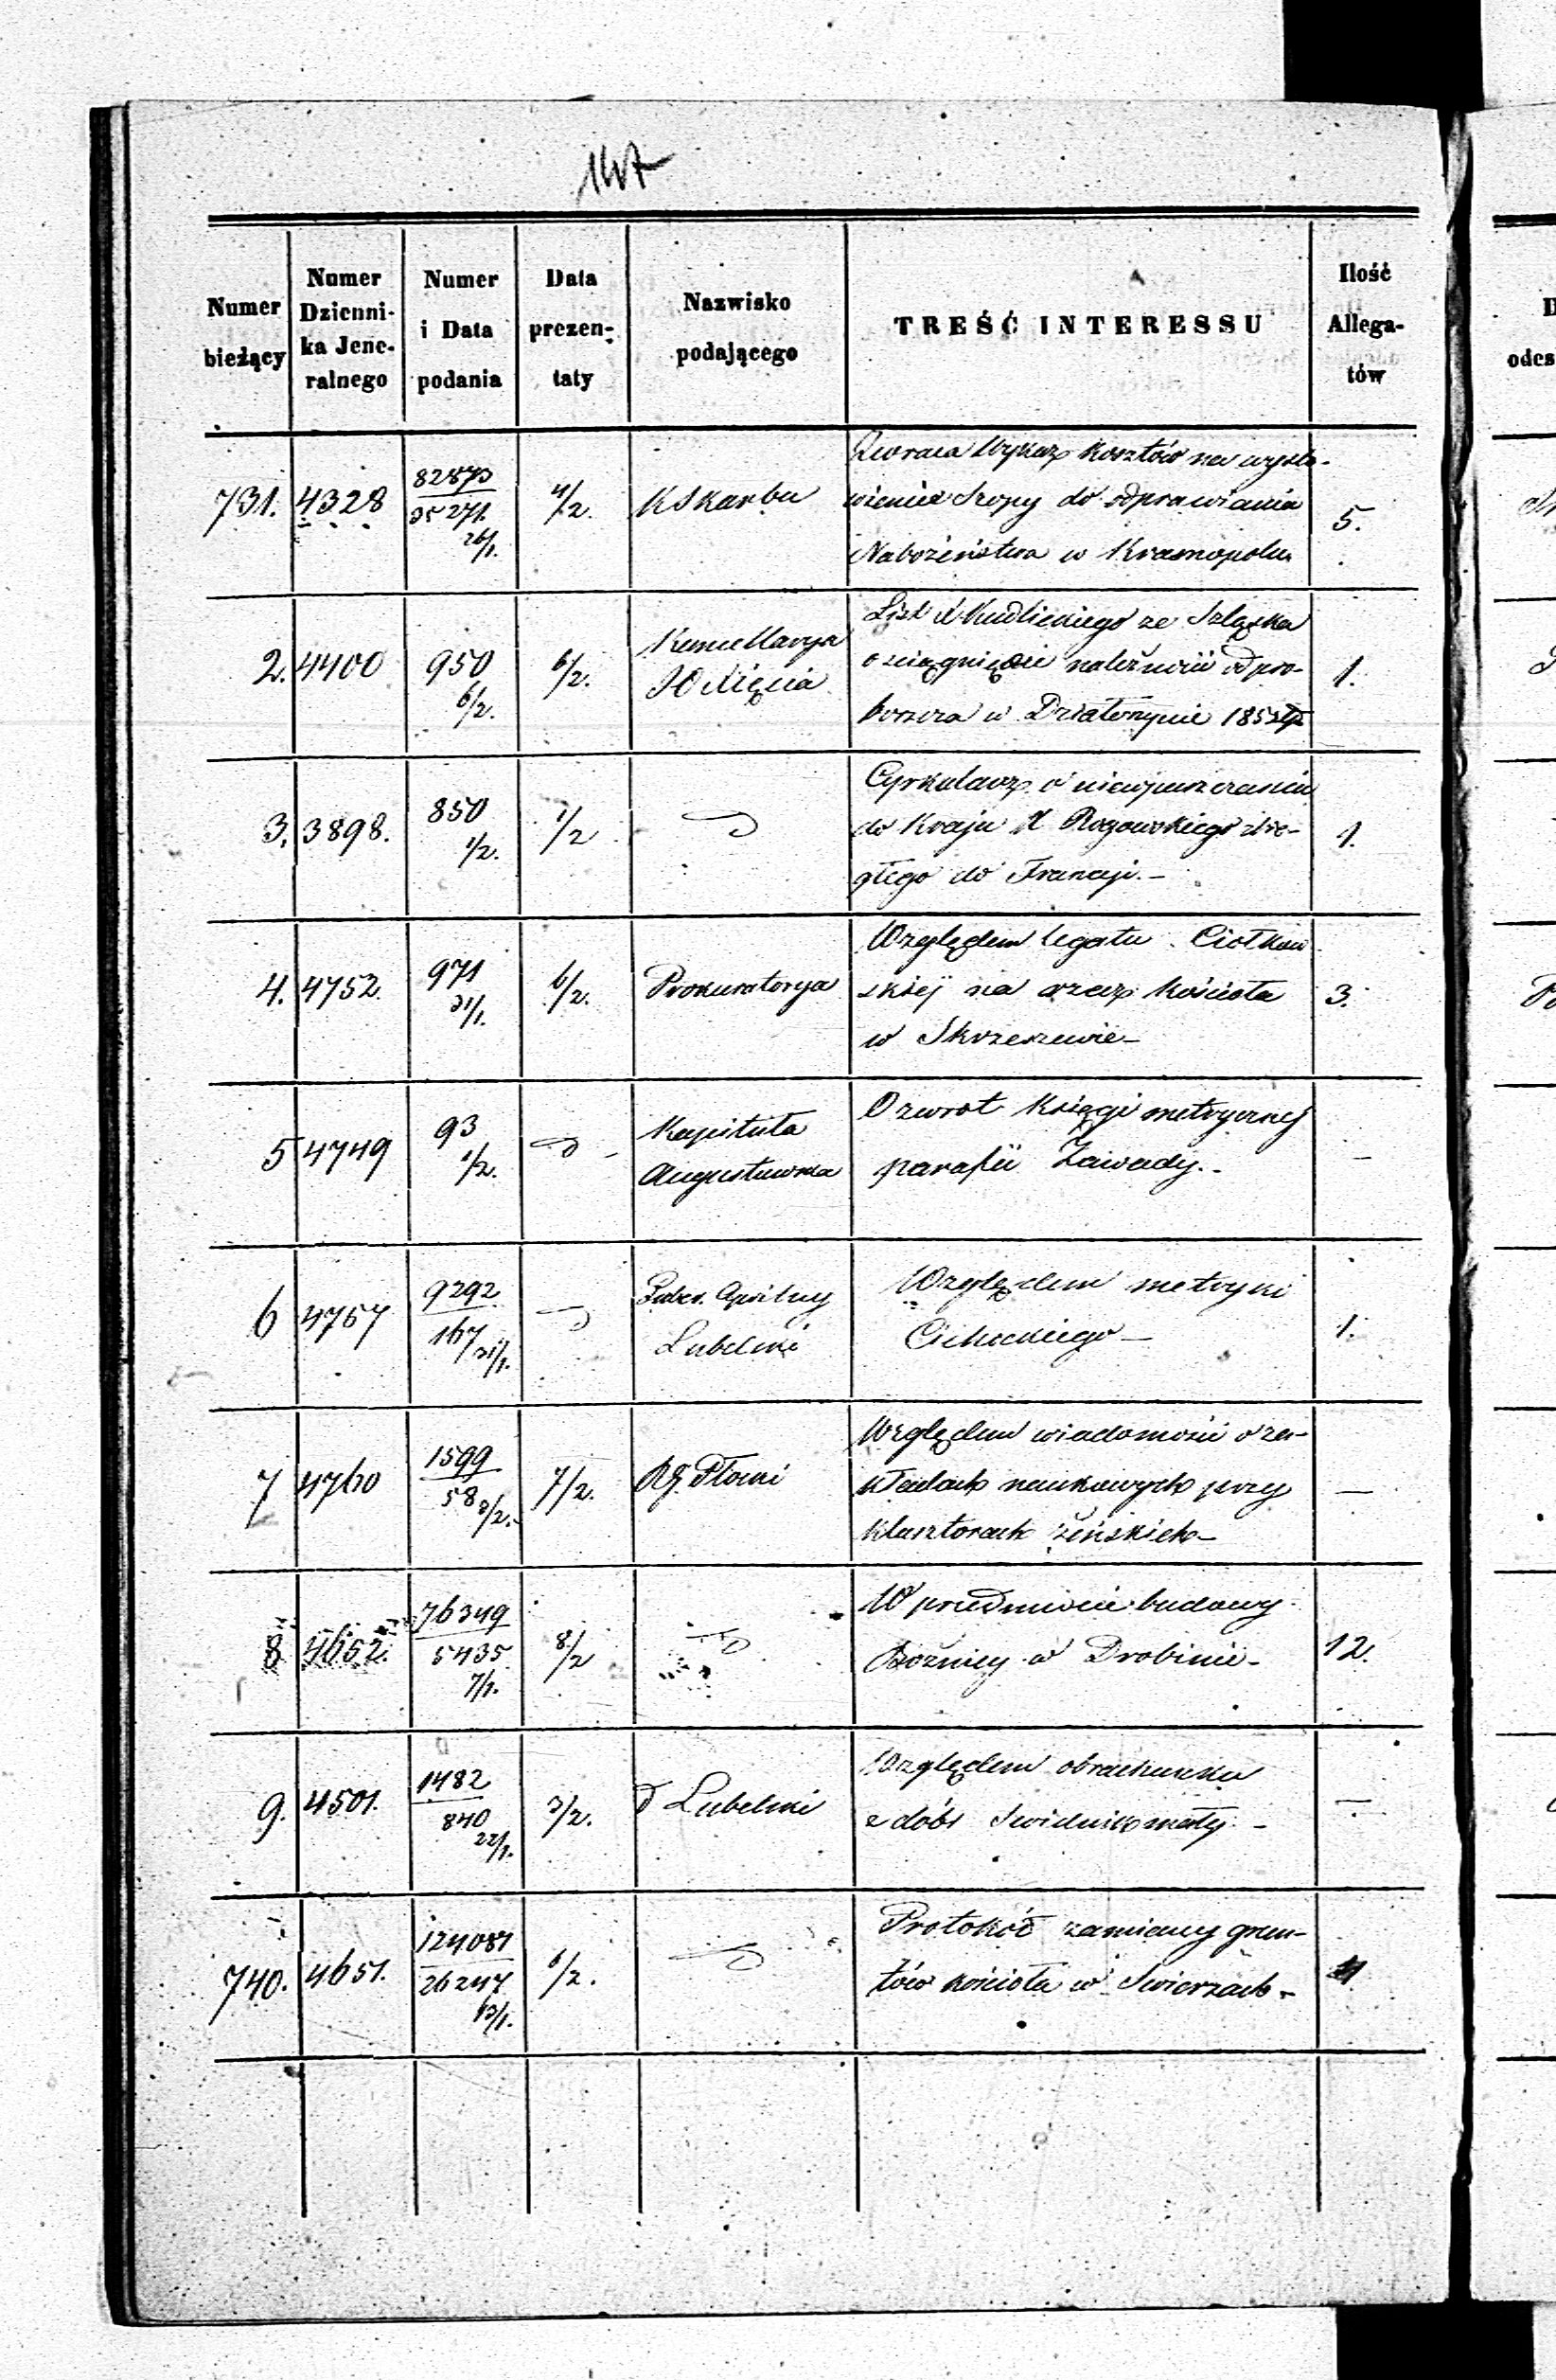 147
Numer bieżący
Numer Dzienni-ka Jene-ralnego
Numer i Data podania
Data prezen-taty
Nazwisko podającego
TREŚĆ INTERESSU
Ilość Allega-tów
731. 4328 82873 35271. 26/1. 4/2. K Skarbu 5.
Zwraca Wykaz kosztów na wysta-
wienie Szopy do odprawiania
Nabożeństwa w Krasnopolu
2. 4400 950 6/2. 6/2. Kancellarya JO Xięcia 1.
List X Kudlickiego ze Szląska
o ściągnięcie należności od pro-
boszcza w Działoszynie
3. 3898. 850 1/2. 1/2 1.
Cyrkularz o niewpuszczaniu
do Kraju X Rogowskiego zbie-
głego do Francyi.-
4. 4752. 971 31/1. 6/2. Prokuratorya 3.
Względem legatu Ciołkow
skiéj na rzecz kościoła
w Skrzeszewie-
5 4749 93 1/2. Kapituła Augustowska -
O zwrot Księgi metrycznej
parafii Zawady.-
6 4757 9292 167/31/1. Guber. Cywilny Lubelski 1.
Względem metryki
Cichockiego-
7 4760 1599 58 3/2. 7/2. RG. Płocki -
Względem wiadomości o za-
kładach naukowych przy
klasztorach żeńskich-
8 4652. 76349 5435 7/1. 8/2 12.
W przedmiocie budowy
Bożnicy w Drobinie-
9. 4501. 1482 840 22/1. 3/2. d Lubelski -
Względem obrachunku
z dóbr Swidnik mały.-
740. 4651. 124081 26247 13/1. 6/2. 4.
Protokół zamiany grun-
tów kościoła w Swierzach-